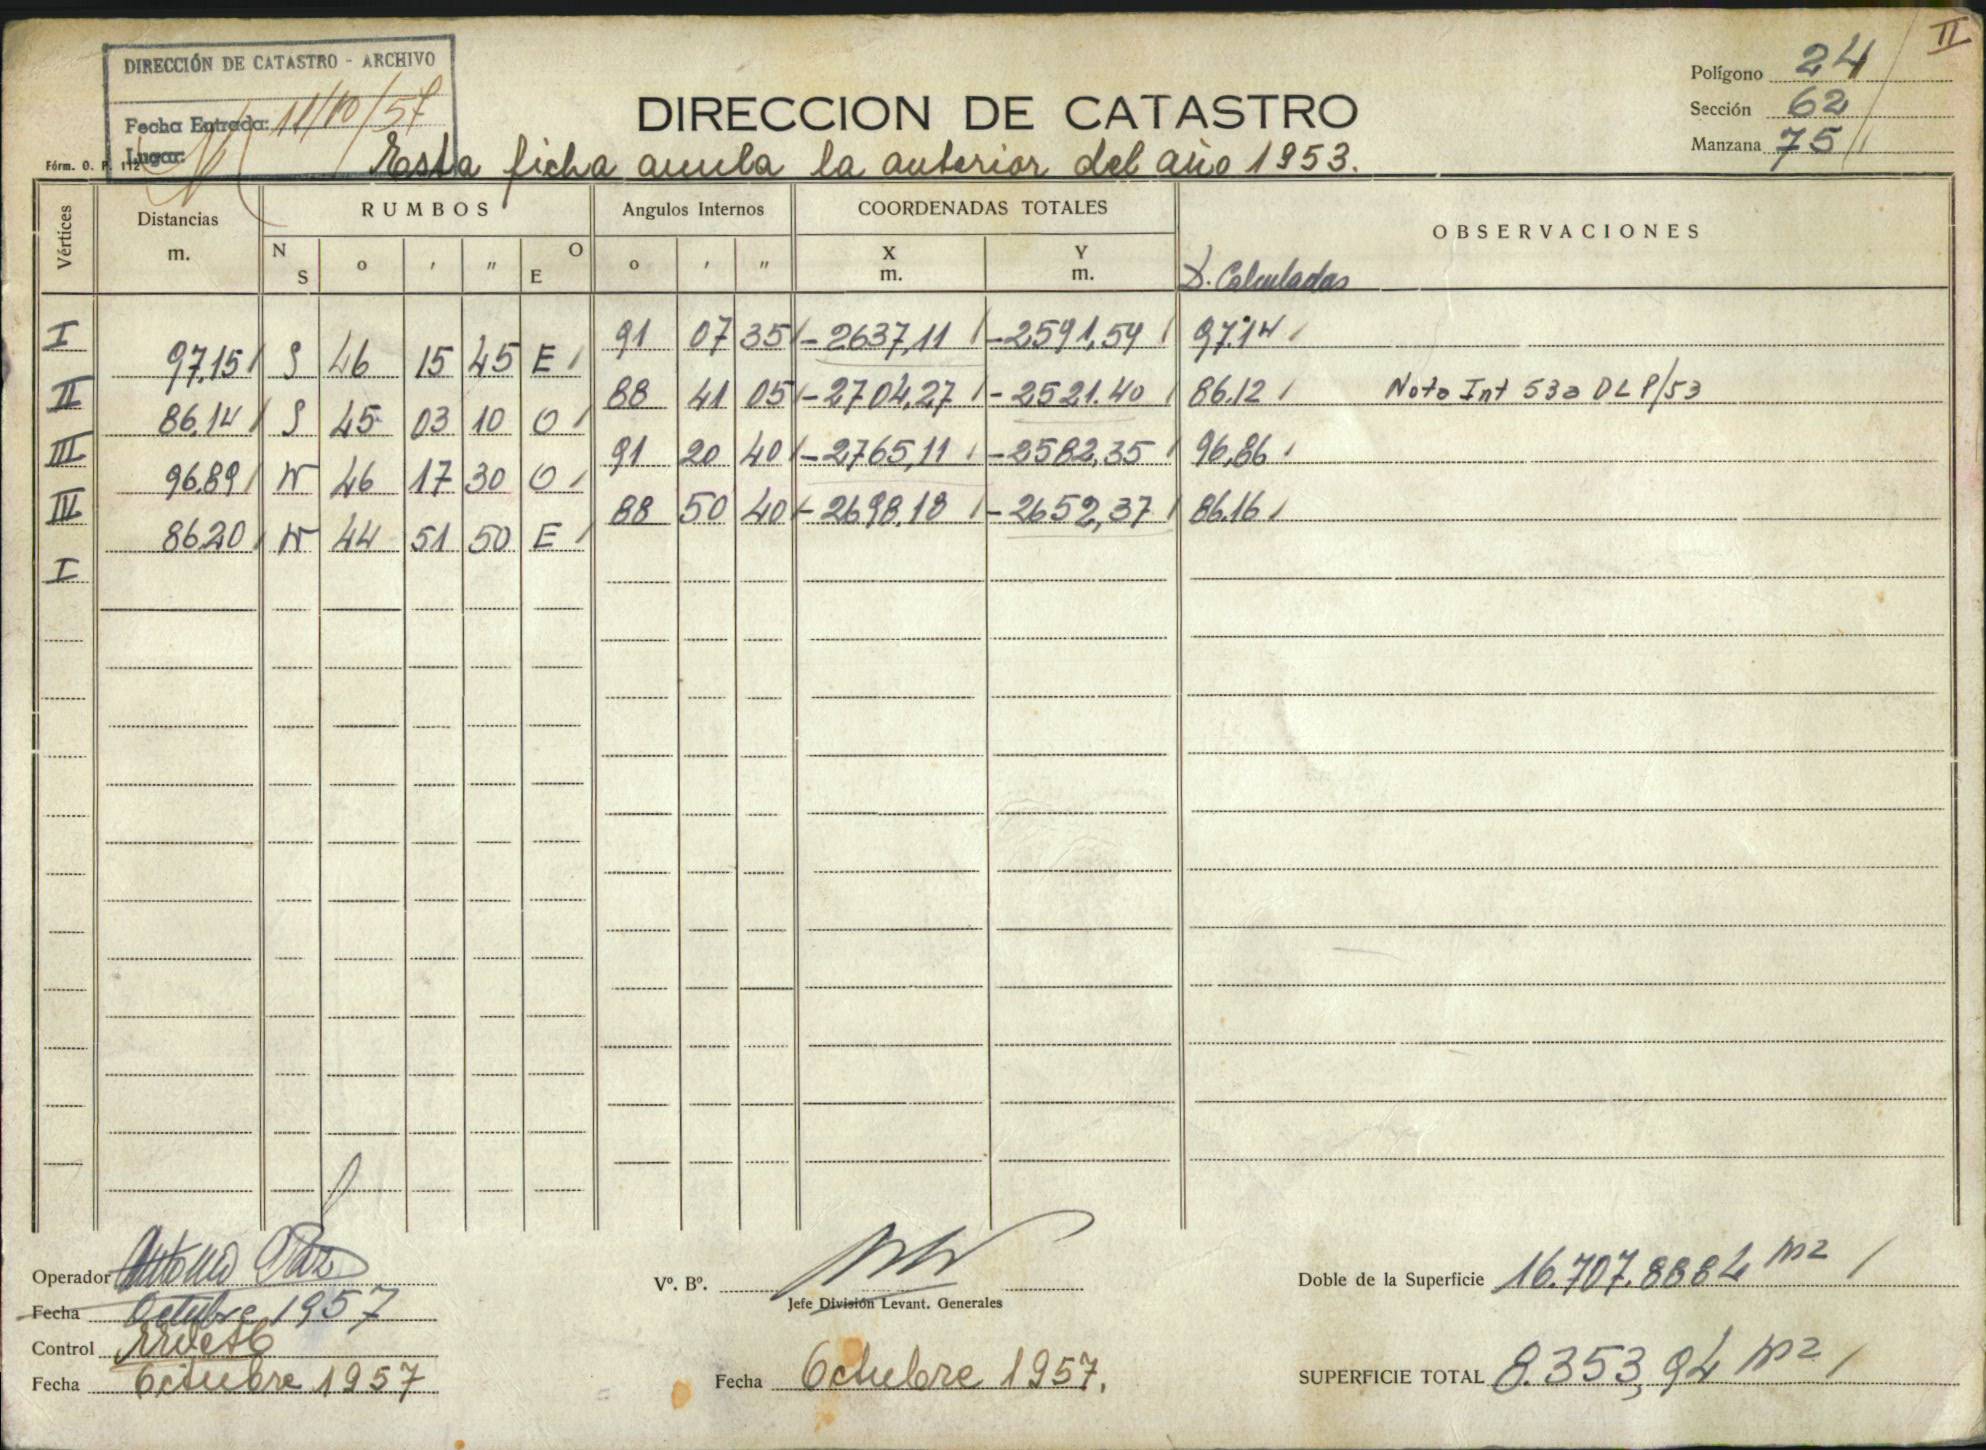 II
DIRECCIÓN DE CATASTRO - ARCHIVO
Fecha Entrada: 11/10/57
Lugar:
Polígono 24
Sección 62
Manzana 75
DIRECCION DE CATASTRO
Fórm. O. P. 112
Esta ficha anula la anterior del año 1953.
Vértices Distancias m. RUMBOS Angulos Internos COORDENADAS TOTALES OBSERVACIONES
N S o ' " O E o ' " X m. Y m. D. Calculadas
I 91 07 35 -2637,11 -2591,54 97.14
97,15 S 46 15 45 E
II 88 41 05 -2704,27 -2521.40 86.12 Nota Int 53a DLP/53
86,14 S 45 03 10 O
III 91 20 40 -2765,11 -2582,35 96,86
96.89 N 46 17 30 O
IIII 88 50 40 -2698,18 -2652,37 86.16
86.20 N 44 51 50 E
I
Operador Antonio Paz
Fecha Octubre 1957
Control
Fecha Octubre 1957
Vº. Bº.
Jefe División Levant. Generales
Fecha Octubre 1957.
Doble de la Superficie 16.707.8884 m2
SUPERFICIE TOTAL 8.353,94 m2